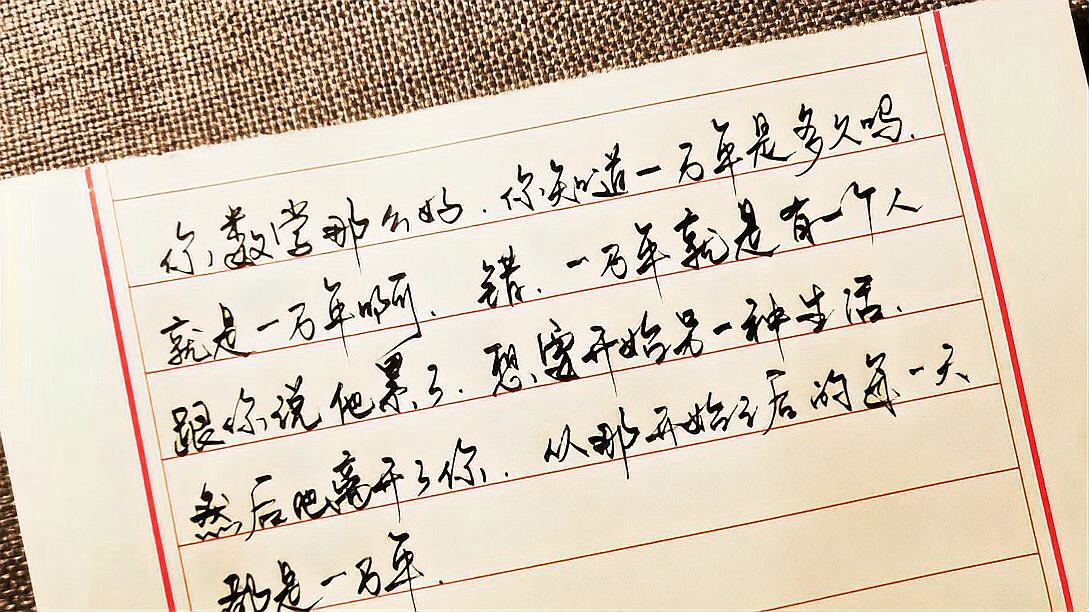 你数学那么好.你知道一万年是多久吗.
就是一万年啊.错.一万年就是有一个人
跟你说他累了.想要开始另一种生活.
然后他离开了你.从那开始之后的每一天
都是一万年.